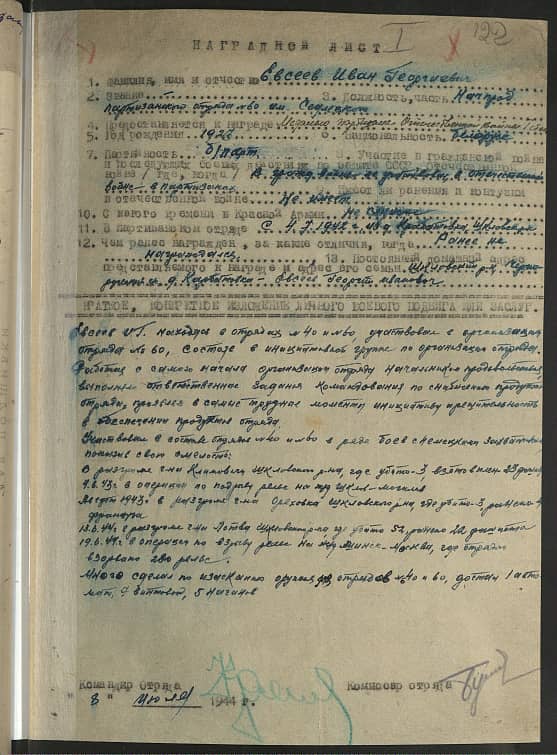 I 122
НАГРАДНОЙ ЛИСТ
1. Фамилия, имя и отчество Евсеев Иван Георгиевич
2. Звание 3. Должность, часть Начпрод
партизанского отряда №60 им.
4. Представляется к награде
5. Год рождения 6. Национальность белорус
7. Партийность б/парт. 8. Участие в гражданской войне
и последующих боевых действиях по защите СССР, Отечественной
войне /где, когда/ В гражд. войне не участвовал, в отечественной
войне - в партизанах 9. Имеет ли ранения и контузии
в отечественной войне Не имеет
10. С какого времени в Красной Армии Не служил
11. В партизанском отряде С 4.7.1942 Шкловского
12. Чем ранее награжден, за какие отличия, когда Ранее не
награждался. 13. Постоянный домашний адрес
представляемого к награде и адрес его семьи Шкловский р-н,
д. - Евсеев Георгий Иванович
КРАТКОЕ, КОНКРЕТНОЕ ИЗЛОЖЕНИЕ ЛИЧНОГО БОЕВОГО ПОДВИГА ИЛИ ЗАСЛУГ.
Евсеев И.Г. находясь в отрядах №40 и №60 участвовал в организации
отряда №60, состоя в инициативной группе по организации отряда.
Работая с самого начала организации отряда начальником продовольствия
выполнял ответственные задания командования по снабжению продуктами
отряда, проявлял в самые трудные моменты инициативу и решительность
в обеспечении продуктами отряда.
Участвовал в составе отрядов №40 и №60 в ряде боев с немецкими захватчиками
показав свою смелость:
В разгроме г-на Шкловского р-на, где убито-3 взято в плен 23
9.6.43г в операции по подрыву рельс на ж/д Шклов-Могилев
Август 1943г. в разгроме г-на Ореховка Шкловского р-на, где убито-3, ранено-4
франера
13.6.44г. в разгроме г-на Шкловского р-на где убито 52, ранено 22 фашиста
19.6.44г. в операции по взрыву рельс на ж/д Минск-Москва, где отрядом
взорвано 280 рельс.
Много сделал по изысканию оружия для отрядов №40 и 60, достал 1 авто
мат, 9 винтовок, 5 наганов
Командир отряда Комиссар отряда
" 8 " Июля 1944 г.